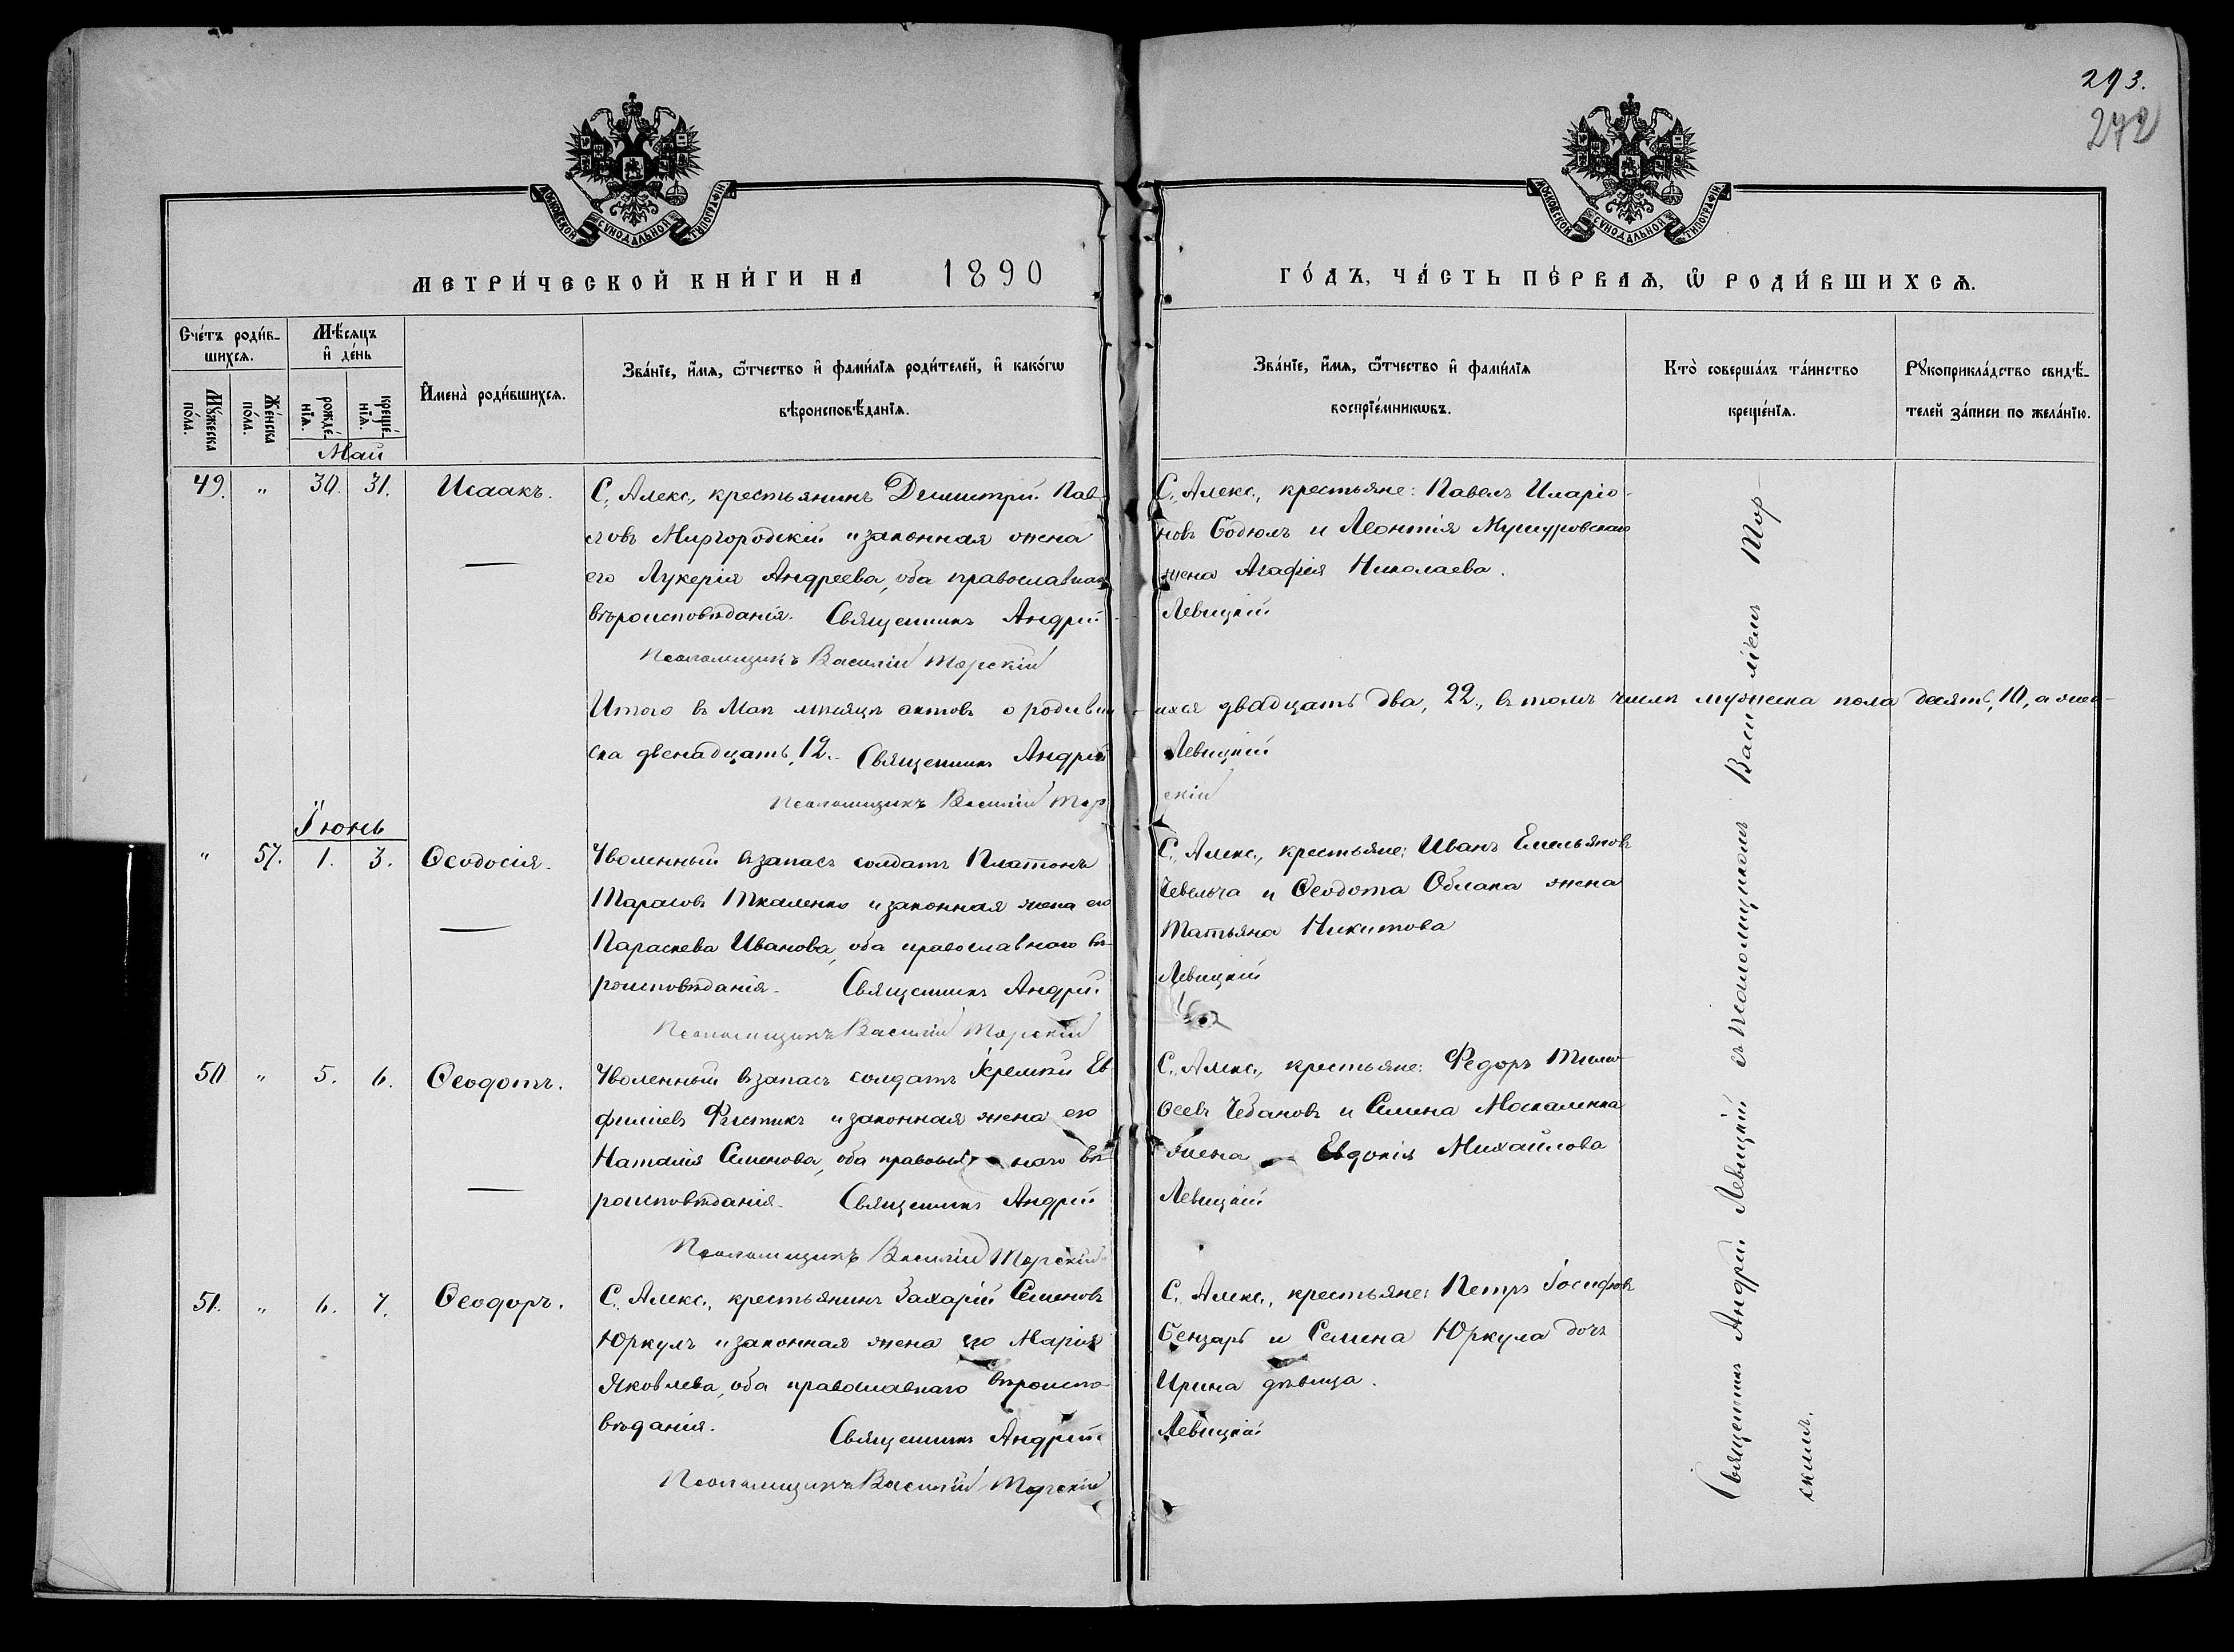 293.
272
МОСКОВСКОЙ СУНОДАЛЬНОЙ ТИПОГРАФІИ
МОСКОВСКОЙ СУНОДАЛЬНОЙ ТИПОГРАФІИ
МЕТРИ́ЧЕСКОЙ КНИ́ГИ НА 1890
ГО́ДЪ, ЧА́СТЬ ПЕ́РВАѦ, Ѡ РОДИ́ВШИХСѦ.
Сче́тъ роди́в-
шихсѧ.
Мꙋ́жеска
по́ла.
Же́нска
по́ла.
Мѣ́сѧцъ
и де́нь
рожде́-
нїѧ.
креще́-
нїѧ.
Имена̀ роди́вшихсѧ.
Зва́нїе, и́мѧ, ѻ́тчество и фами́лїѧ роди́телей, и како́гѡ
вѣроисповѣ́данїѧ.
Зва́нїе, и́мѧ, ѻ́тчество и фами́лїѧ
воспрїе́мникѡвъ.
Кто̀ соверша́лъ та́инство
креще́нїѧ.
Рꙋкоприкла́дство свидѣ́-
телей за́писи по жела́нїю.
Май
49. " 30. 31. Исаакъ.
С. Алекс., крестьянинъ Димитрій Пав-
ловъ Миргородскій и законная жена
его Лукерія Андреева, оба православнаго
вѣроисповѣданія. Священникъ Андрей
Псаломщикъ Василій Торскій
С. Алекс., крестьяне: Павелъ Иларіо-
новъ Бодюлъ и Леонтія
жена Агафія Николаева.
Левицкій
Итого въ Маѣ мѣсяцѣ актовъ о родивши-
хся двадцать два, 22., въ томъ числѣ мужеска пола десять, 10, а жен-
ска двенадцать, 12. Священникъ Андрей
Левицкій
Псаломщикъ Василій Тор
скій
Іюнь
" 57. 1. 3. Ѳеодосія.
Уволенный въ запасъ солдатъ Платонъ
Тарасовъ Ткаленко и законная жена его
Параскева Иванова, оба православнаго вѣ-
роисповѣданія. Священникъ Андрей
Псаломщикъ Василій Торскій
С. Алекс., крестьяне: Иванъ Емельяновъ
Чевельча и Ѳеодота Облака жена
Татьяна Никитова
Левицкій
50 " 5. 6. Ѳеодотъ.
Уволенный въ запасъ солдатъ Іеремій Ев-
фиміевъ Фистикъ и законная жена его
Наталія Семенова, оба православнаго вѣ-
роисповѣданія. Священникъ Андрей
Псаломщикъ Василій Торскій
С. Алекс., крестьяне: Ѳедоръ Тимо-
ѳеевъ Чебановъ и Семена Москаленка
жена Евдокія Михайлова
Левицкій
51. " 6. 7. Ѳеодоръ.
С. Алекс., крестьянинъ Захарій Семеновъ
Юркулъ и законная жена его Марія
Яковлева, оба православнаго вѣроиспо-
вѣданія. Священникъ Андрей
Псаломщикъ Василій Торскій
С. Алекс., крестьяне: Петръ Іосифовъ
Бензарь и Семена Юркула дочь
Ирина дѣвица.
Левицкій
Священникъ Андрей Левицкій съ псаломщикомъ Василіемъ Тор-
скимъ.